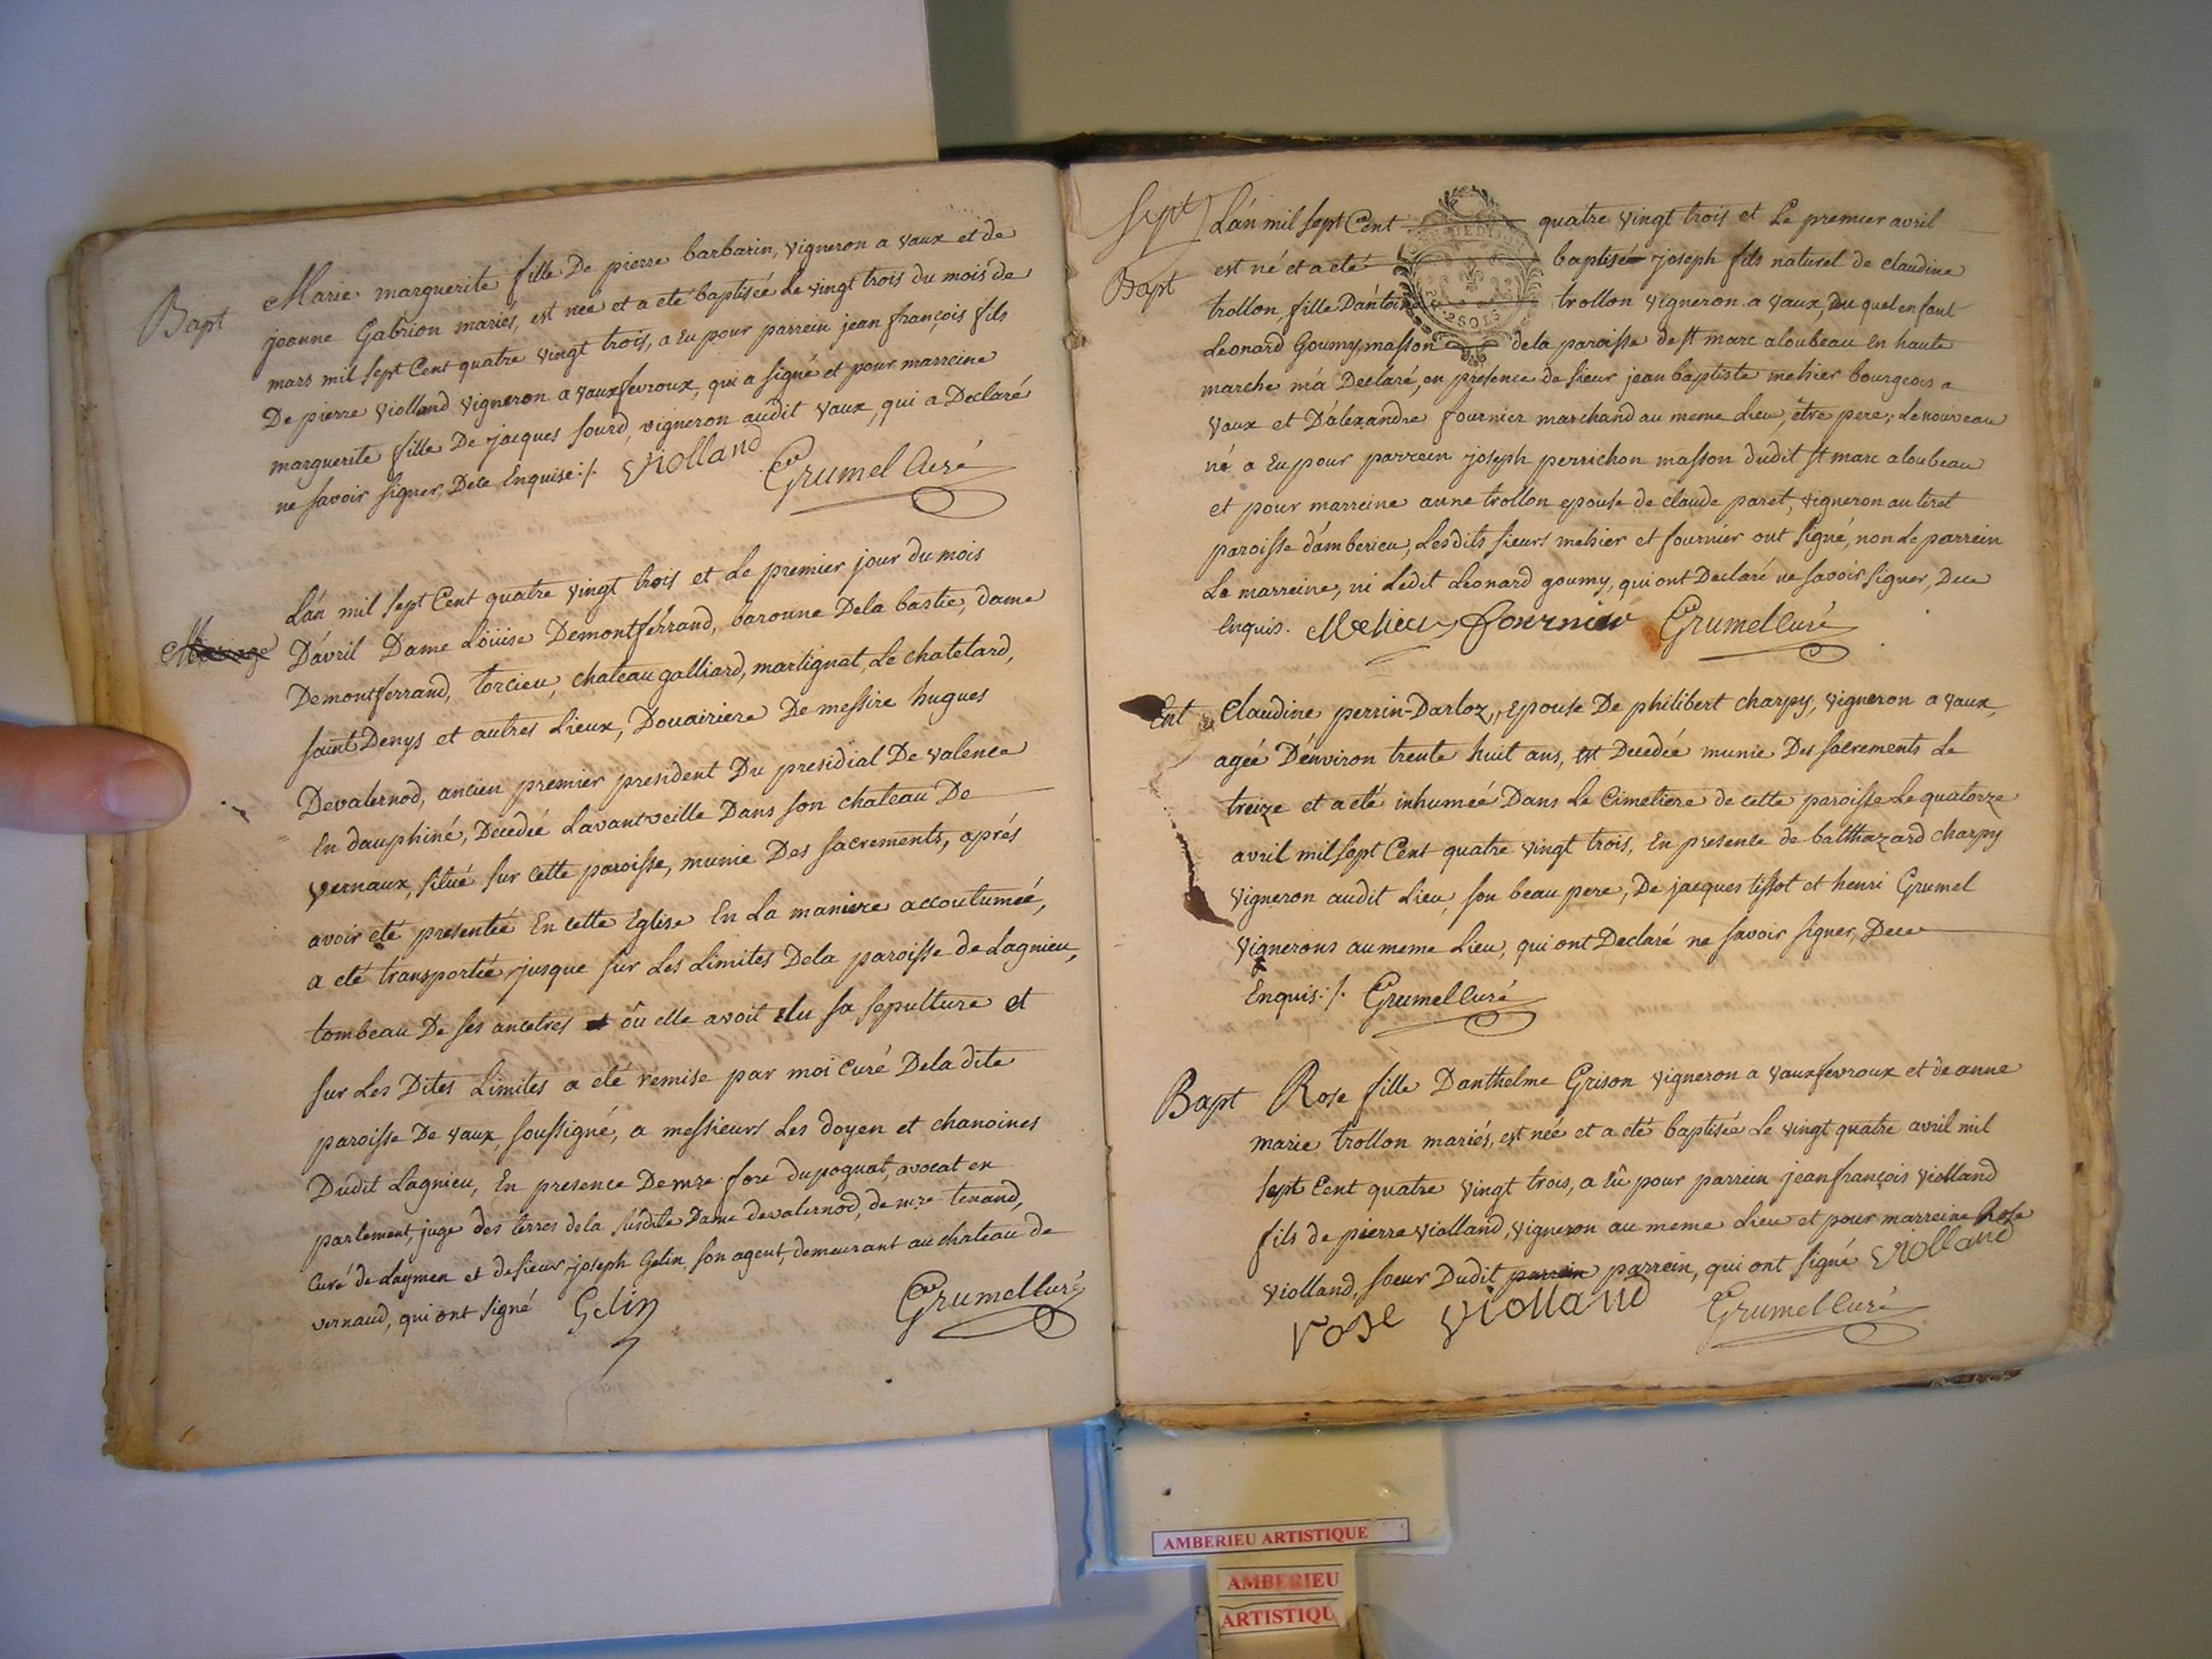 Bapt
Marie marguerite fille De pierre barbarin, vigneron a vaux et de
jeanne Gabrion mariés, est née et a eté baptisée Le vingt trois du mois de
mars mil sept Cent quatre vingt trois, a Eu pour parrein jean françois fils
De pierre violland vigneron a vauxfevroux, qui a signé et pour marreine
marguerite fille De jacques sourd, vigneron audit vaux, qui a Declaré
ne savoir signer, Dece Enquise ·/. violland Grumel Curé
Mariage
L'an mil sept Cent quatre vingt trois et Le premier jour du mois
D'avril Dame Loüise Demontferrand, baronne Dela bastie, dame
Demontferrand, torcieu, chateau galliard, martignat, Le chatelard,
saint Denys et autres Lieux, Douairiere De messire hugues
Devalernod, ancien premier president Du presidial De valence
En dauphiné, Decedée Lavantveille Dans son chateau De
vernaux, situé sur cette paroisse, munie Des sacrements, aprés
avoir eté presentée En cette Eglise En La maniere accoutumée,
a eté transportée jusque sur Les Limites Dela paroisse de Lagnieu,
tombeau De ses ancetres et où elle avoit Elu sa sepulture et
sur Les Dites Limites a eté remise par moi Curé Dela dite
paroisse De vaux, soussigné, a messieurs Les doyen et chanoines
Dudit Lagnieu, En presence De mre fore dupognat, avocat en
parlement, juge des terres dela susdite Dame devalernod, de mre tenand,
Curé de Laymen et de sieur joseph Gelin son agent, demeurant au chateau de
vernaud, qui ont signé Gelin Grumel Curé
sept
L'an mil sept Cent quatre vingt trois et Le premier avril
Bapt
est né et a eté baptisé joseph fils naturel de claudine
trollon, fille D'antoine trollon vigneron a vaux, Du quel enfant
2 SOLS
Leonard Goumy masson dela paroisse de st marc aloubeau En haute
marche m'a Declaré, en presence de sieur jean baptiste mehier bourgeois a
vaux et D'alexandre fournier marchand au meme Lieu, être pere; Le nouveau
né a Eu pour parrein joseph perrichon masson dudit st marc aloubeau
et pour marreine anne trollon epouse de claude paret, vigneron au tiret
paroisse d'amberieu, Lesdits sieurs mehier et fournier ont signé, non Le parrein
La marreine, ni Ledit Leonard goumy, qui ont Declaré ne savoir signer, Dece
Enquis. Mehier fournier Grumel Curé
Ent
Claudine perrin-Darloz, Epouse De philibert charpy, vigneron a vaux,
agée D'environ trente huit ans, est Decedée munie Des sacrements Le
treize et a eté inhumée Dans Le Cimetiere de cette paroisse Le quatorze
avril mil sept Cent quatre vingt trois, En presence de balthazard charpy
vigneron audit Lieu, son beau pere, De jacques tissot et henri Grumel
vignerons au meme Lieu, qui ont Declaré ne savoir signer, Dece
Enquis ·/. Grumel Curé
Bapt
Rose fille Danthelme Grison vigneron a vauxfevroux et de anne
marie trollon mariés, est née et a eté baptisée Le vingt quatre avril mil
sept Cent quatre vingt trois, a Eû pour parrein jean françois violland
fils de pierre violland, vigneron au meme Lieu et pour marreine Rose
violland, soeur Dudit parrein parrein, qui ont signé violland
rose violland Grumel Curé
AMBERIEU ARTISTIQUE
AMBERIEU
ARTISTIQU